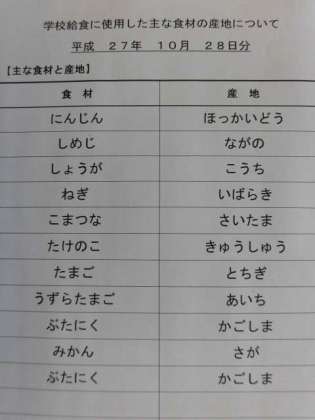 学校給食に使用した主な食材の産地について
平成 27年 10月 28日分
【主な食材と産地】
食 材 産 地
にんじん ほっかいどう
しめじ ながの
しょうが こうち
ねぎ いばらき
こまつな さいたま
たけのこ きゅうしゅう
たまご とちぎ
うずらたまご あいち
ぶたにく かごしま
みかん さが
ぶたにく かごしま